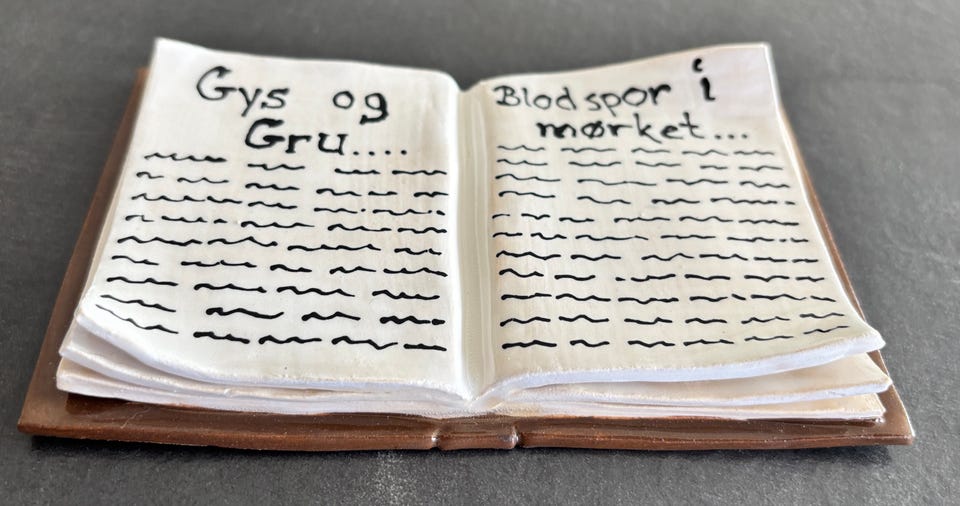 Gys og
Gru....
Blodspor i
mørket...